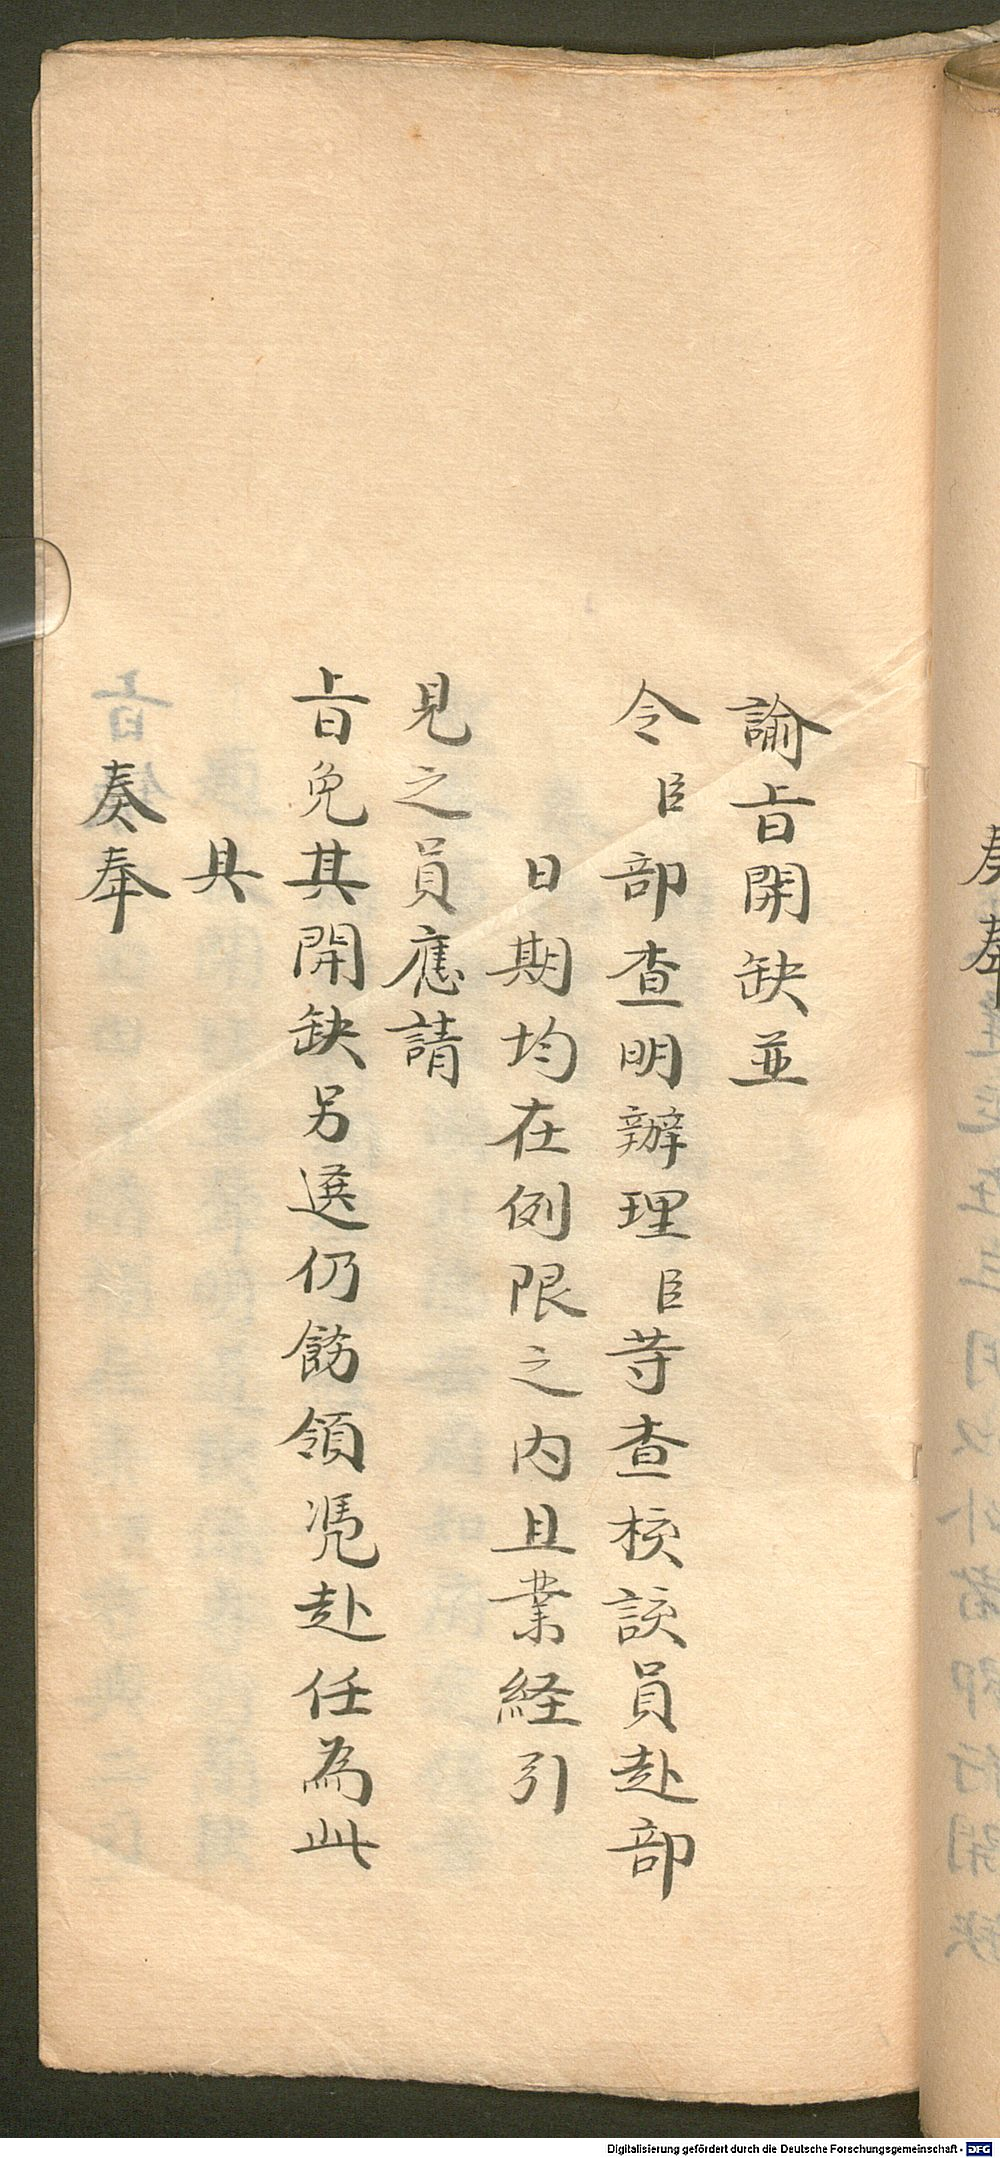 諭旨開缺並
令臣部查明辦理臣等查核該員赴部
日期均在例限之内且業経引
見之員應請
旨免其開缺另選仍飭領凴赴任為此
具
奏奉
Digitalisierung gefördert durch die Deutsche Forschungsgemeinschaft - DFG